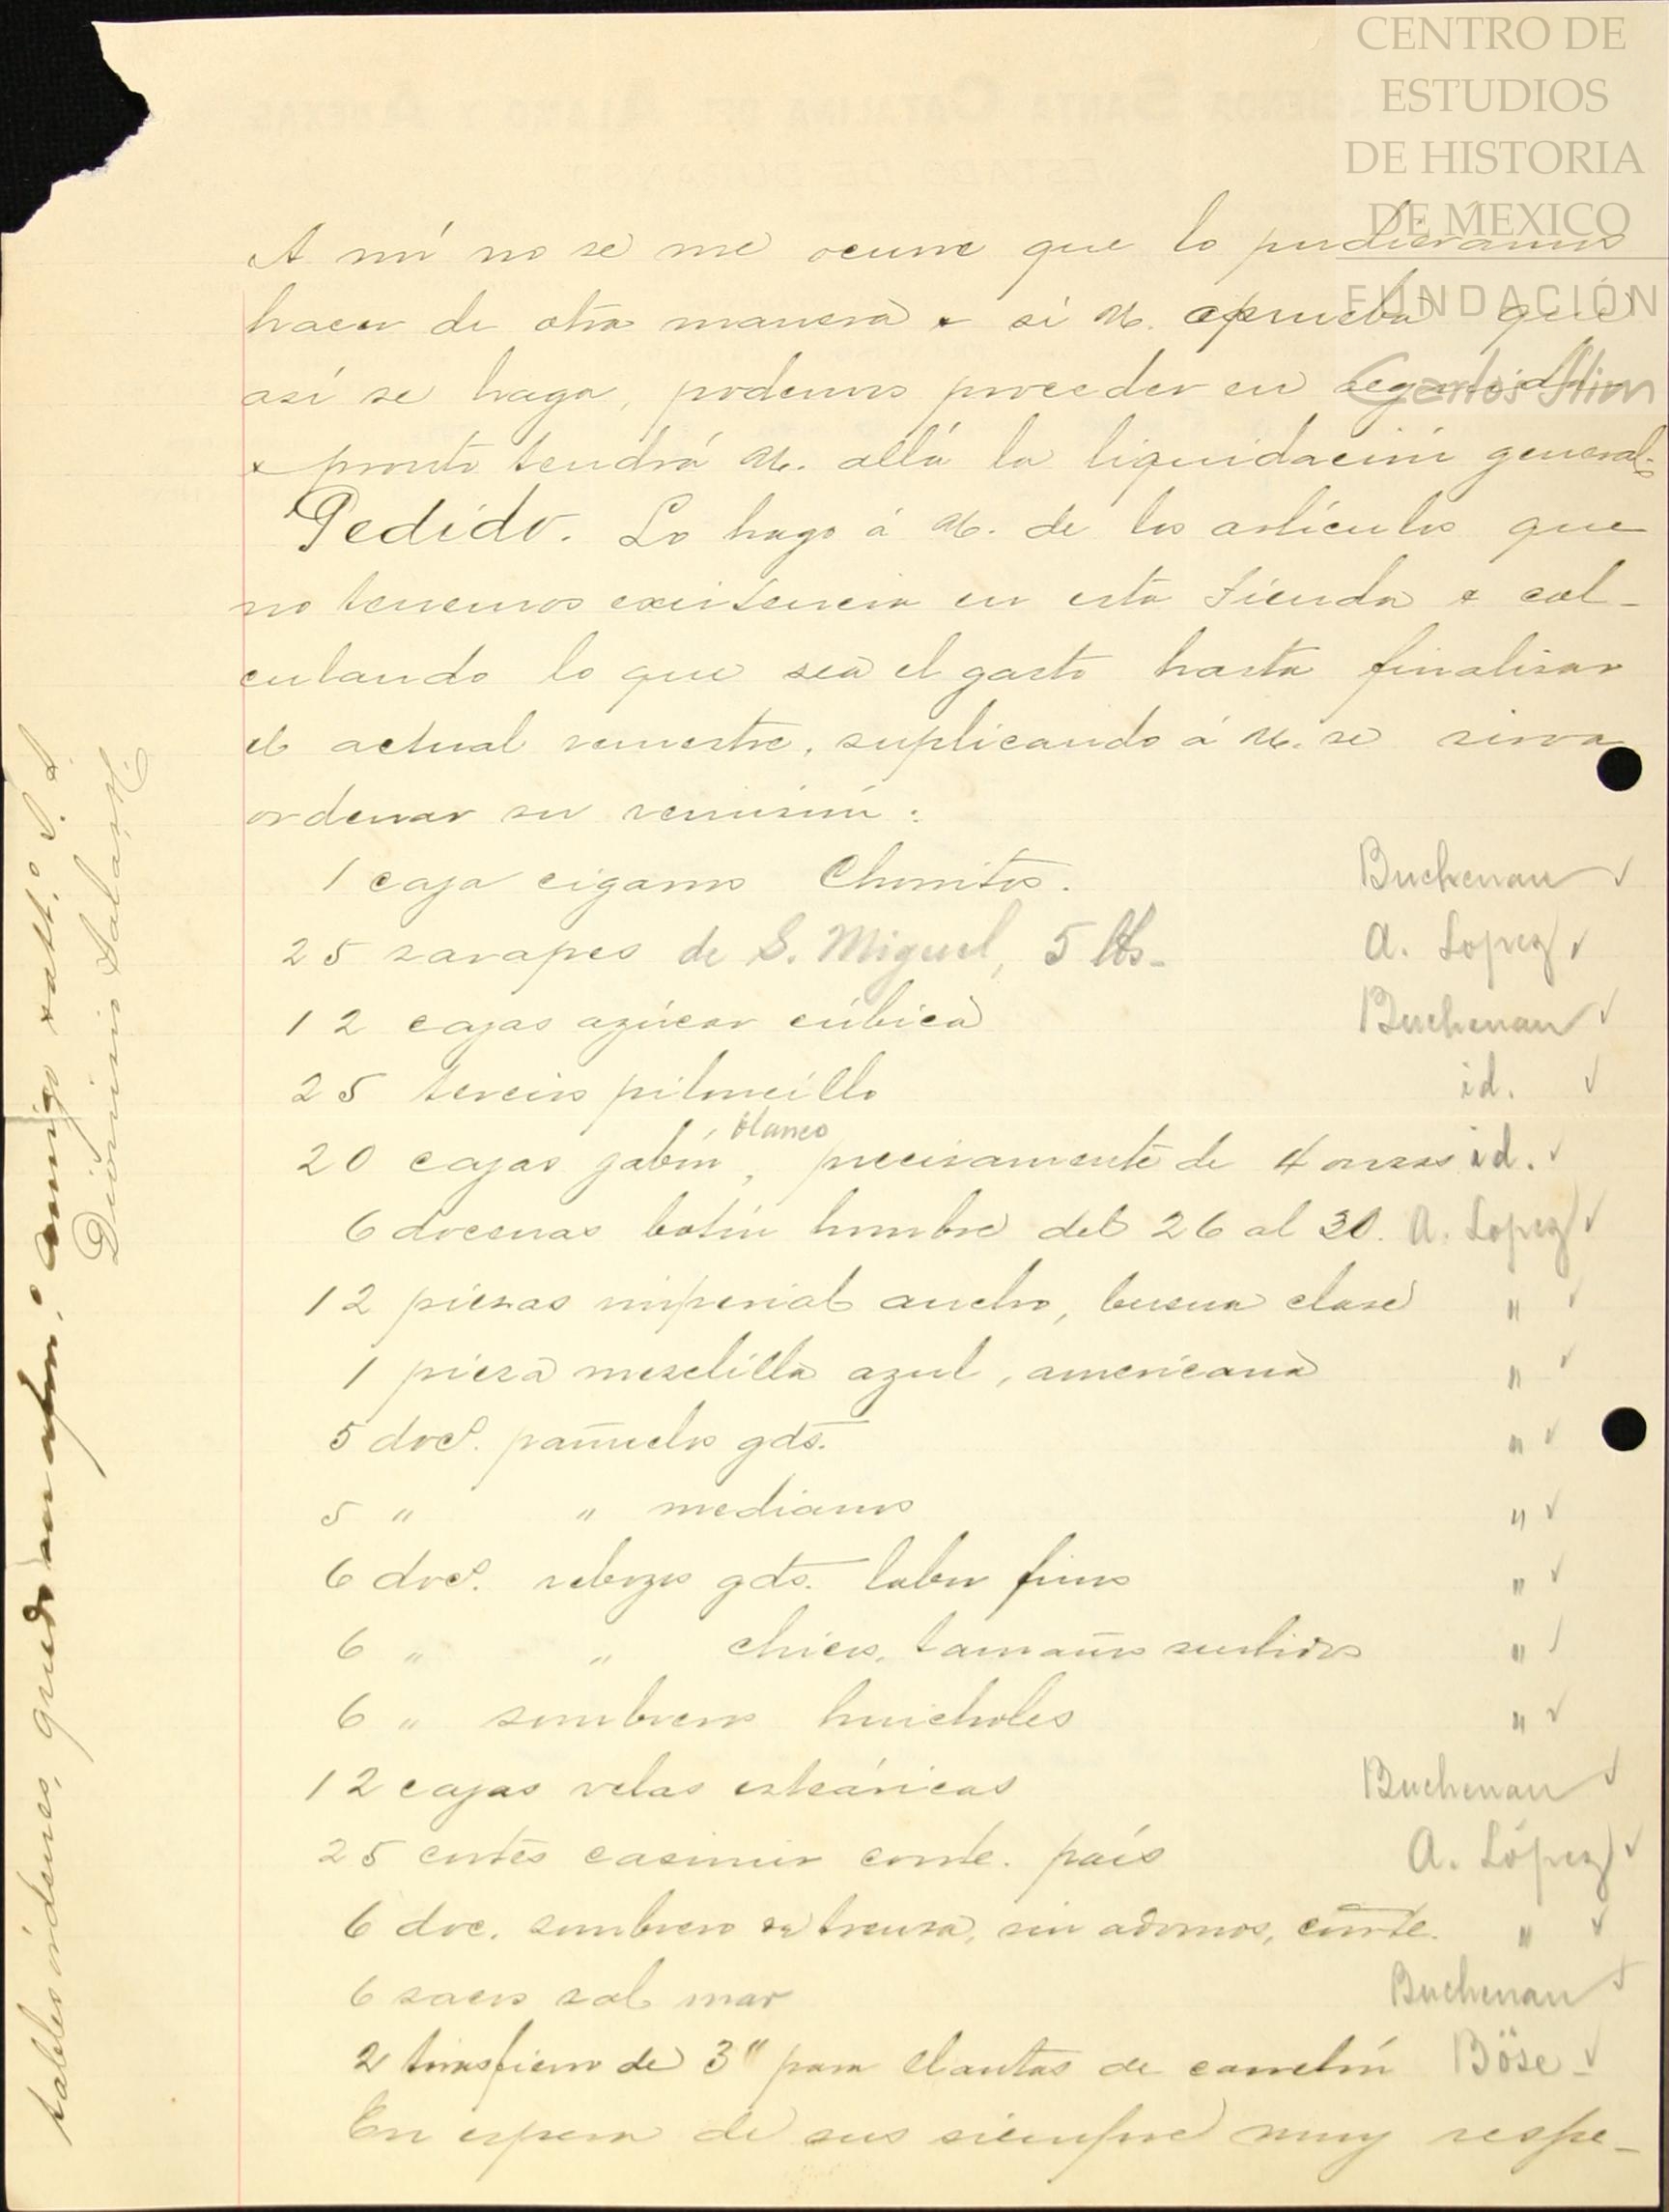 CENTRO DE
ESTUDIOS
DE HISTORIA
DE MÉXICO
FUNDACIÓN
Carlos Slim
A mí no se me ocurre que lo pudieramos
hacer de otra manera & si U. aprueba que
así se haga, podemos proceder en seguida
& pronto tendrá U. allá la liquidación general.
Pedido. Lo hago á U. de los artículos que
no tenemos existencia en esta tienda & cal-
culando lo que sea el gasto hasta finalisar
el actual semestre, suplicando á U. se sirva
ordenar su remisión:
1 caja cigarros Chorritos. Buchenau ✓
25 sarapes de S. Miguel, 5 lbs. A. Lopez ✓
12 cajas azúcar cúbica Buchenau ✓
25 tercios piloncillo id. ✓
20 cajas jabón blanco, precisamente de 4 onzas id. ✓
6 docenas botín hombre del 26 al 30. A. Lopez ✓
12 piezas imperial ancho, buena clase " ✓
1 pieza mesclilla azul, americana " ✓
5 doc. pañuelos gds. " ✓
5 " " medianos " ✓
6 doc. rebozos gds. labor fina " ✓
6 " " chicos, tamaños surtidos " ✓
6 " sombreros huicholes " ✓
12 cajas velas esteáricas Buchenau ✓
25 cortes casimir corrte. país A. López ✓
6 doc. sombrero trensa, sin adornos, corrte. " ✓
6 sacos sal mar Buchenau ✓
2 tiras fierro de 3" para llantas de carretón Böse ✓
En espera de sus siempre muy respe-
tables órdenes, quedo su afmo. amigo & att.º S. S.
Dionisio Salas H.